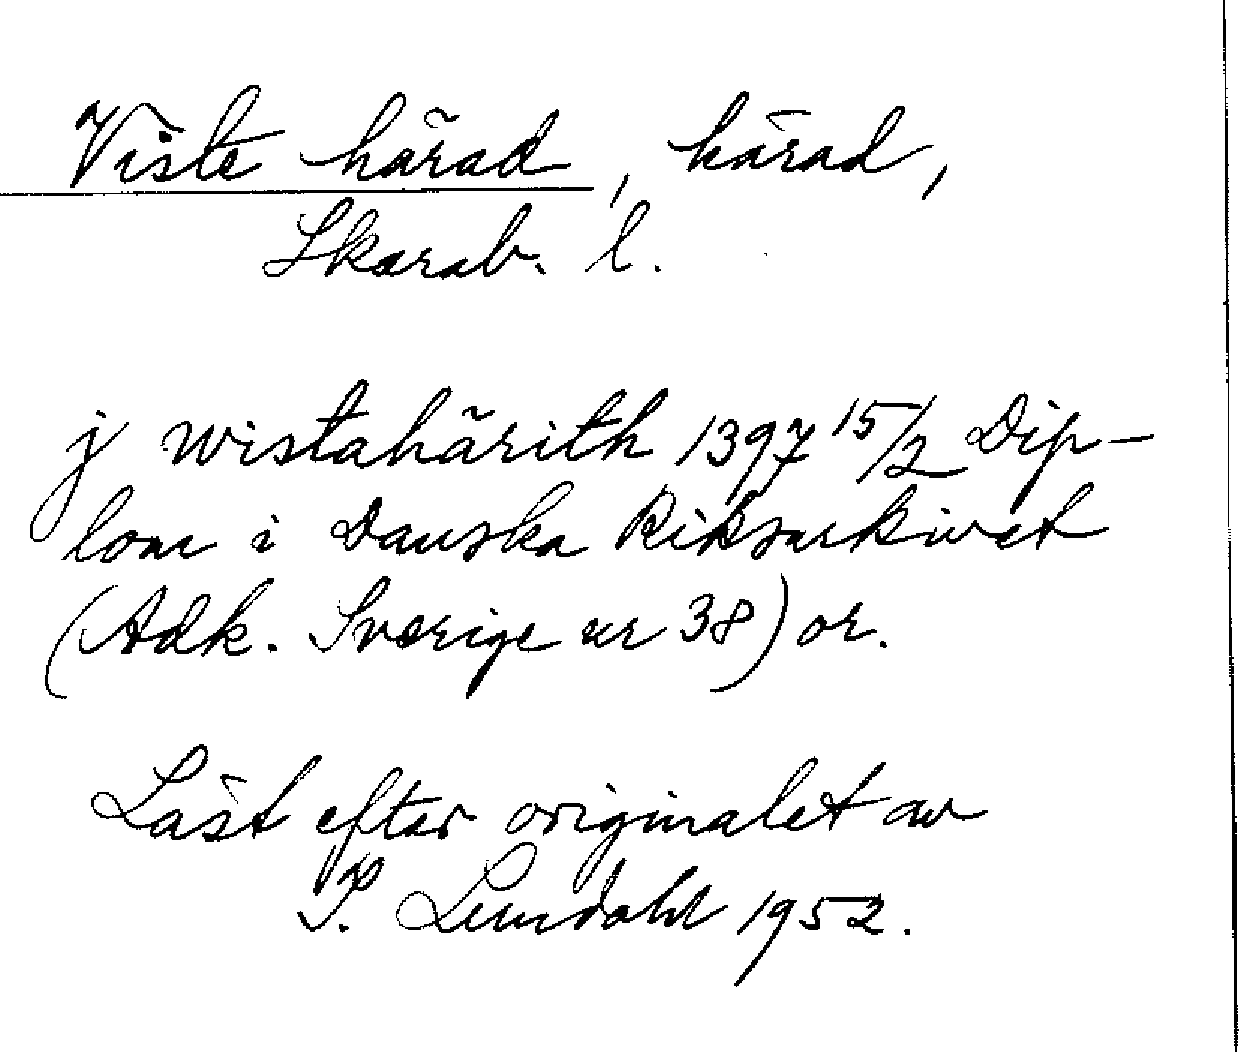 Viste härad, härad,
Skarab. l.
j wistahärith 1397 15/2 Dip-
lom i Danska Riksarkivet
(Adk. Sverige nr 38) or.
Läst efter originalet av
P. Lindahl 1952.